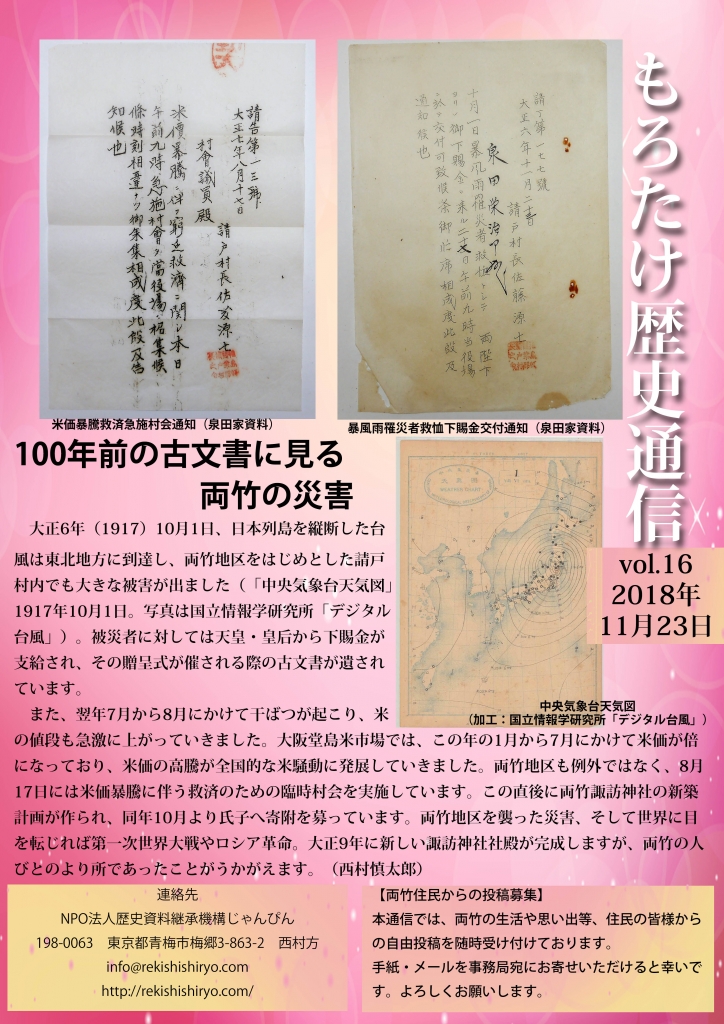 もろたけ歴史通信
vol.16
2018年
11月23日
請告第一三號
大正七年八月十七日
請戸村長佐藤源七
村會議員殿
米價暴騰ニ伴フ窮乏救濟ニ関シ本日
午前九時急施村會ヲ當役場ニ招集候
條時刻相違ナク御参集相成度此段及告
知候也
請丁第一七七號
請戸村長佐藤源七
泉田栄治
十月一日暴風雨罹災者救恤トシテ両陛下
通知候也
米価暴騰救済急施村会通知（泉田家資料）
暴風雨罹災者救恤下賜金交付通知（泉田家資料）
100年前の古文書に見る
両竹の災害
　大正6年（1917）10月1日、日本列島を縦断した台
風は東北地方に到達し、両竹地区をはじめとした請戸
村内でも大きな被害が出ました（「中央気象台天気図」
1917年10月1日。写真は国立情報学研究所「デジタル
台風」）。被災者に対しては天皇・皇后から下賜金が
支給され、その贈呈式が催される際の古文書が遺され
ています。
　また、翌年7月から8月にかけて干ばつが起こり、米
の値段も急激に上がっていきました。大阪堂島米市場では、この年の1月から7月にかけて米価が倍
になっており、米価の高騰が全国的な米騒動に発展していきました。両竹地区も例外ではなく、8月
17日には米価暴騰に伴う救済のための臨時村会を実施しています。この直後に両竹諏訪神社の新築
計画が作られ、同年10月より氏子へ寄附を募っています。両竹地区を襲った災害、そして世界に目
を転じれば第一次世界大戦やロシア革命。大正9年に新しい諏訪神社社殿が完成しますが、両竹の人
びとのより所であったことがうかがえます。（西村慎太郎）
中央気象台天気図
（加工：国立情報学研究所「デジタル台風」）
連絡先
NPO法人歴史資料継承機構じゃんぴん
198-0063　東京都青梅市梅郷3-863-2　西村方
info@rekishishiryo.com
http://rekishishiryo.com/
【両竹住民からの投稿募集】
本通信では、両竹の生活や思い出等、住民の皆様から
の自由投稿を随時受け付けております。
手紙・メールを事務局宛にお寄せいただけると幸いで
す。よろしくお願いします。